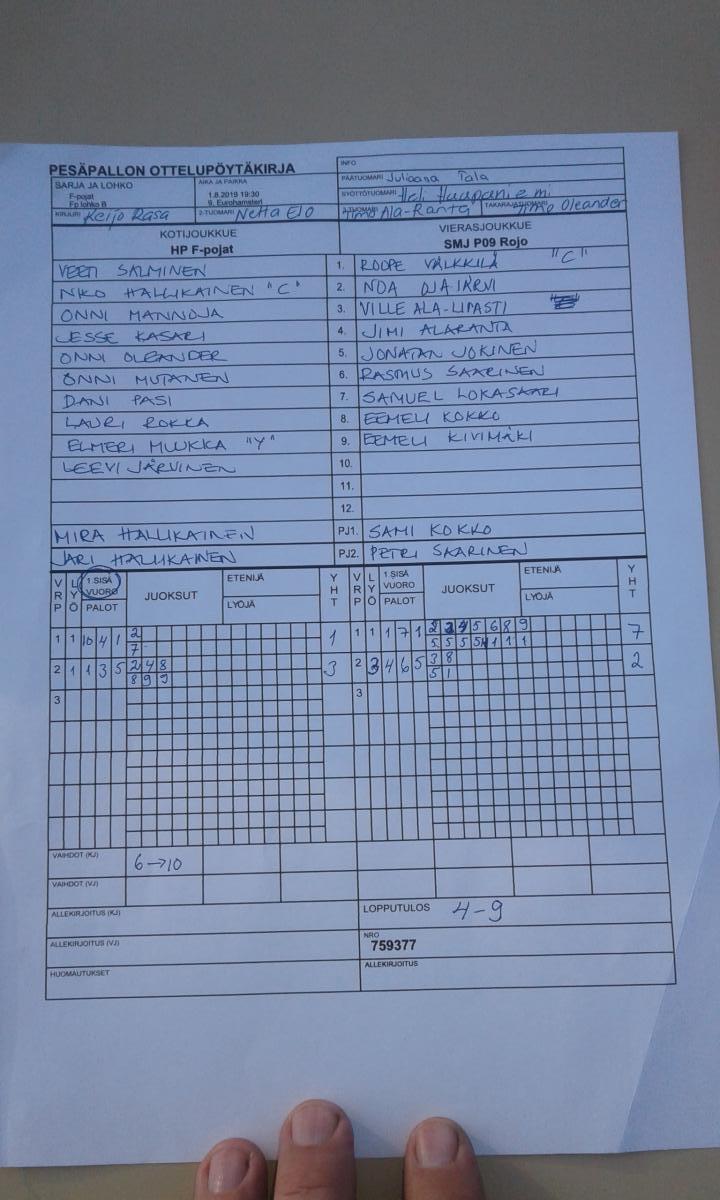 PESÄPALLON OTTELUPÖYTÄKIRJA
INFO
SARJA JA LOHKO
F-pojat
Fp lohko B
AIKA JA PAIKKA
1.8.2019 19:30
PÄÄTUOMARI Juliaana Tala
SYÖTTÖTUOMARI Heli Haapaniemi
KIRJURI Keijo Rasa
2-TUOMARI Netta Elo
3-TUOMARI Timo Ala-Ranta
TAKARAJATUOMARI Timo Oleander
KOTIJOUKKUE
HP F-pojat
VIERASJOUKKUE
SMJ P09 Rojo
VEETI SALMINEN 1. ROOPE VÄLKKILÄ "C"
NIKO HALLIKAINEN "C" 2. NOA OJAJÄRVI
ONNI MANNOJA 3. VILLE ALA-LIPASTI
JESSE KASARI 4. JIMI ALARANTA
ONNI OLEANDER 5. JONATAN JOKINEN
ONNI MUTANEN 6. RASMUS SAARINEN
DANI PASI 7. SAMUEL LOKASAARI
LAURI ROKKA 8. EEMELI KOKKO
ELMERI MUUKKA "Y" 9. EEMELI KIVIMÄKI
LEEVI JÄRVINEN 10.
11.
12.
MIRA HALLIKAINEIN PJ1. SAMI KOKKO
JARI HALLIKAINEN PJ2. PETRI SAARINEN
VRP LYÖ 1.SISÄ VUORO PALOT JUOKSUT ETENIJÄ LYÖJÄ YHT VRP LYÖ 1.SISÄ VUORO PALOT JUOKSUT ETENIJÄ LYÖJÄ YHT
1 1 10 4 1 2 1 1 1 1 7 1 2 3 4 5 6 8 9 7
7 5 5 5 5 1 1 1
2 1 1 3 5 2 4 8 3 2 3 4 6 5 3 8 2
8 9 9 5 1
3 3
VAIHDOT (KJ) 6→10
VAIHDOT (VJ)
ALLEKIRJOITUS (KJ)
LOPPUTULOS 4-9
ALLEKIRJOITUS (VJ)
NRO
759377
HUOMAUTUKSET
ALLEKIRJOITUS